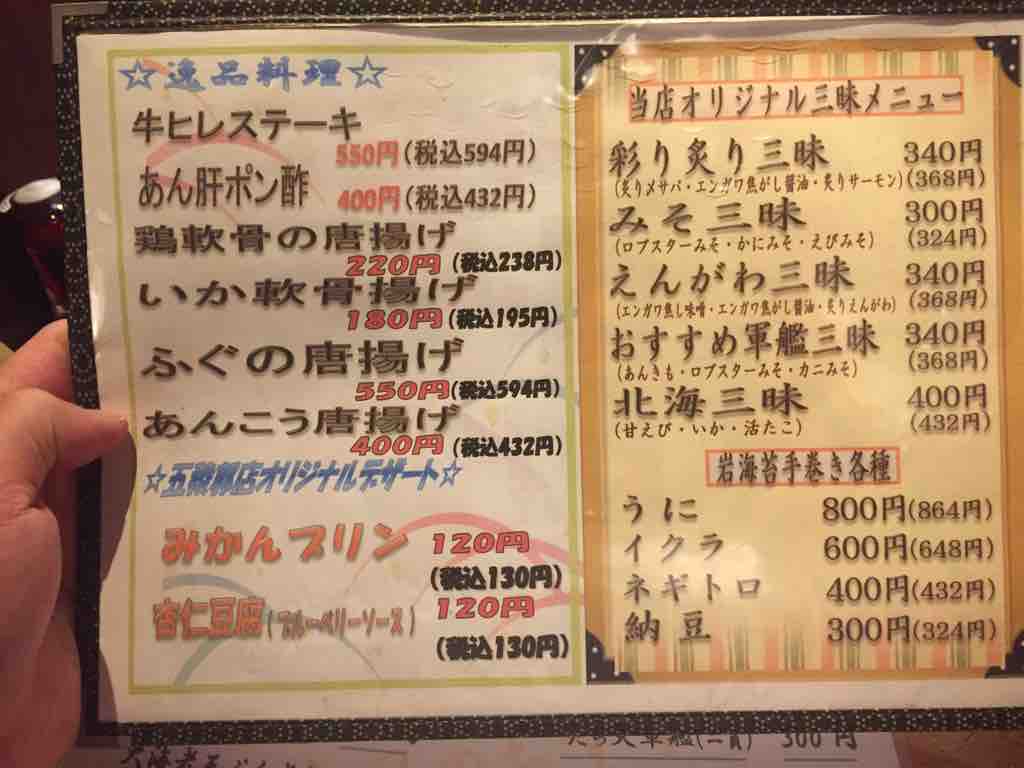 ☆逸品料理☆
牛ヒレステーキ
550円(税込594円)
あん肝ポン酢
400円(税込432円)
鶏軟骨の唐揚げ
220円(税込238円)
いか軟骨揚げ
180円(税込195円)
ふぐの唐揚げ
550円(税込594円)
あんこう唐揚げ
400円(税込432円)
☆五稜郭店オリジナルデザート☆
みかんプリン 120円
(税込130円)
杏仁豆腐(ブルーベリーソース) 120円
(税込130円)
当店オリジナル三昧メニュー
彩り炙り三昧 340円
(炙りメサバ・エンガワ焦がし醤油・炙りサーモン)(368円)
みそ三昧 300円
(ロブスターみそ・かにみそ・えびみそ) (324円)
えんがわ三昧 340円
(エンガワ焦し味噌・エンガワ焦がし醤油・炙りえんがわ) (368円)
おすすめ軍艦三昧 340円
(あんきも・ロブスターみそ・カニみそ) (368円)
北海三昧 400円
(甘えび・いか・活たこ) (432円)
岩海苔手巻き各種
うに 800円(864円)
イクラ 600円(648円)
ネギトロ 400円(432円)
納豆 300円(324円)
300円